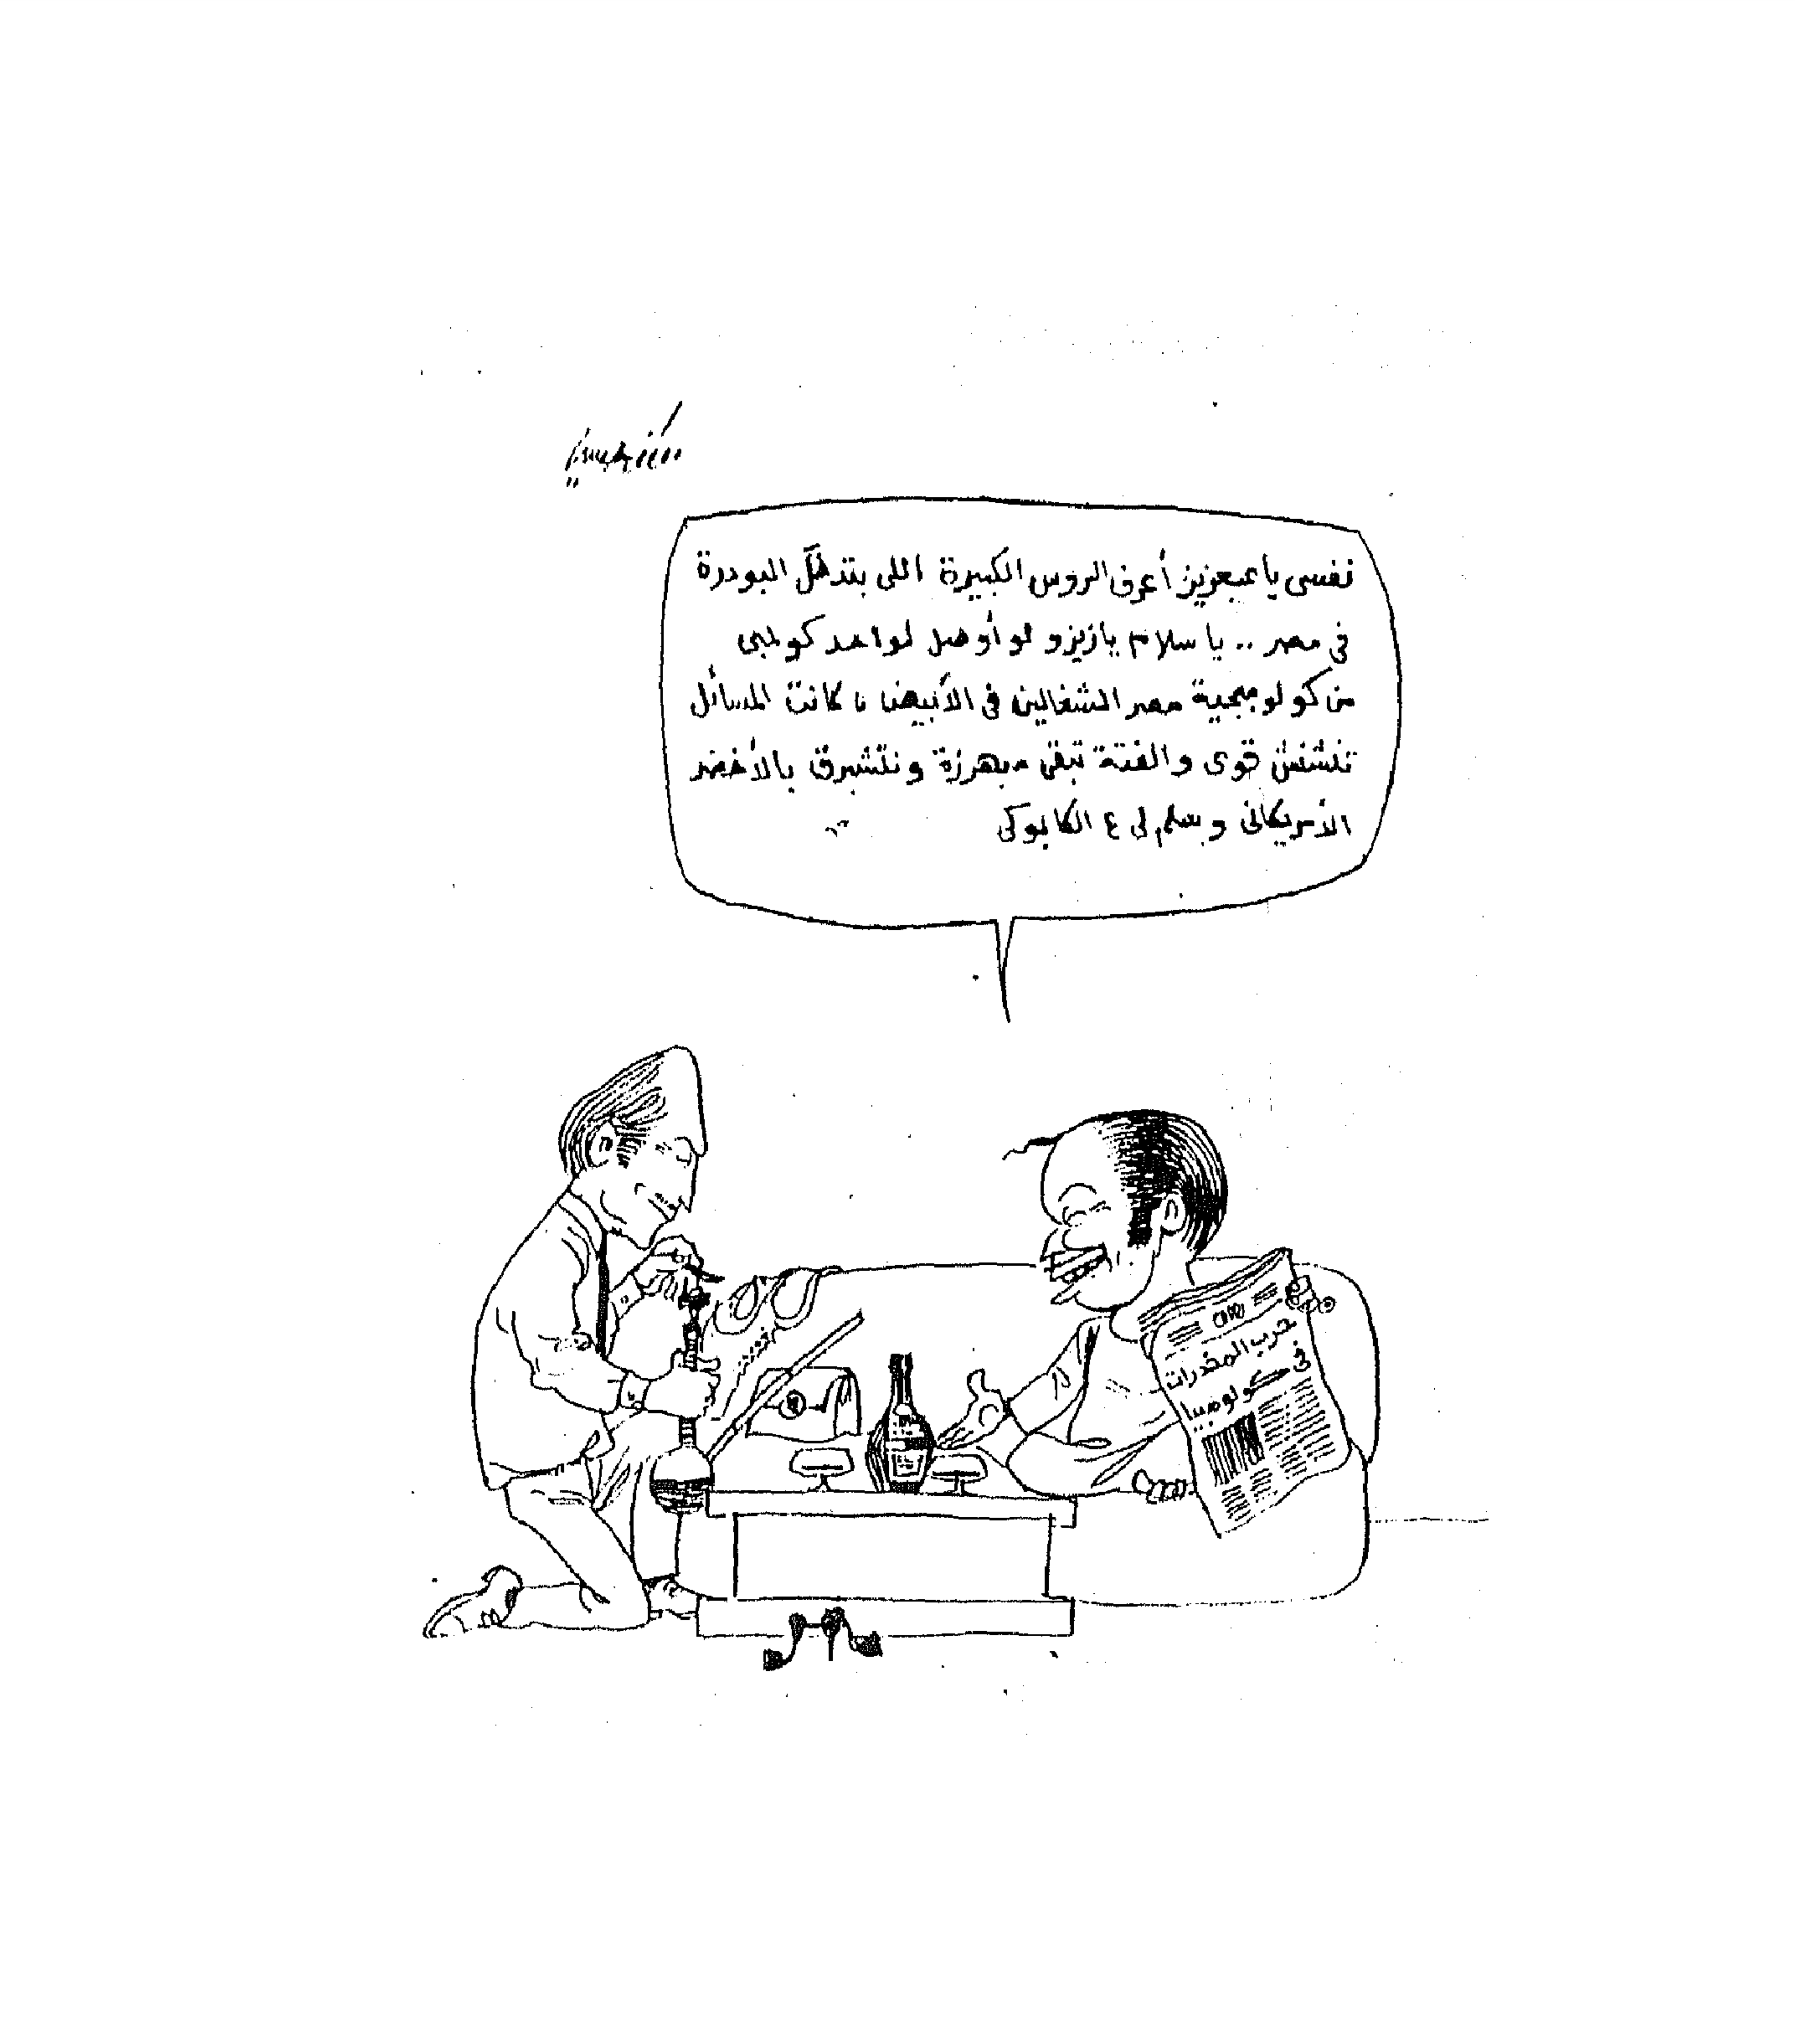 نفسى يا عبعزيز أعرف الروس الكبيرة اللى بتدخَّل البودرة
فى مصر .. يا سلام يا زيزو لو أوصل لواحد كولمبى
من كولومبجية مصر الشغالين فى الأبيض كانت المسائل
تنشنش قوى والفتة تبقى مبهرزة ونتشبرق بالأخضر
الأمريكانى وسلم لى ع الكابوكى
حرب المخدرات
فى كولومبيا